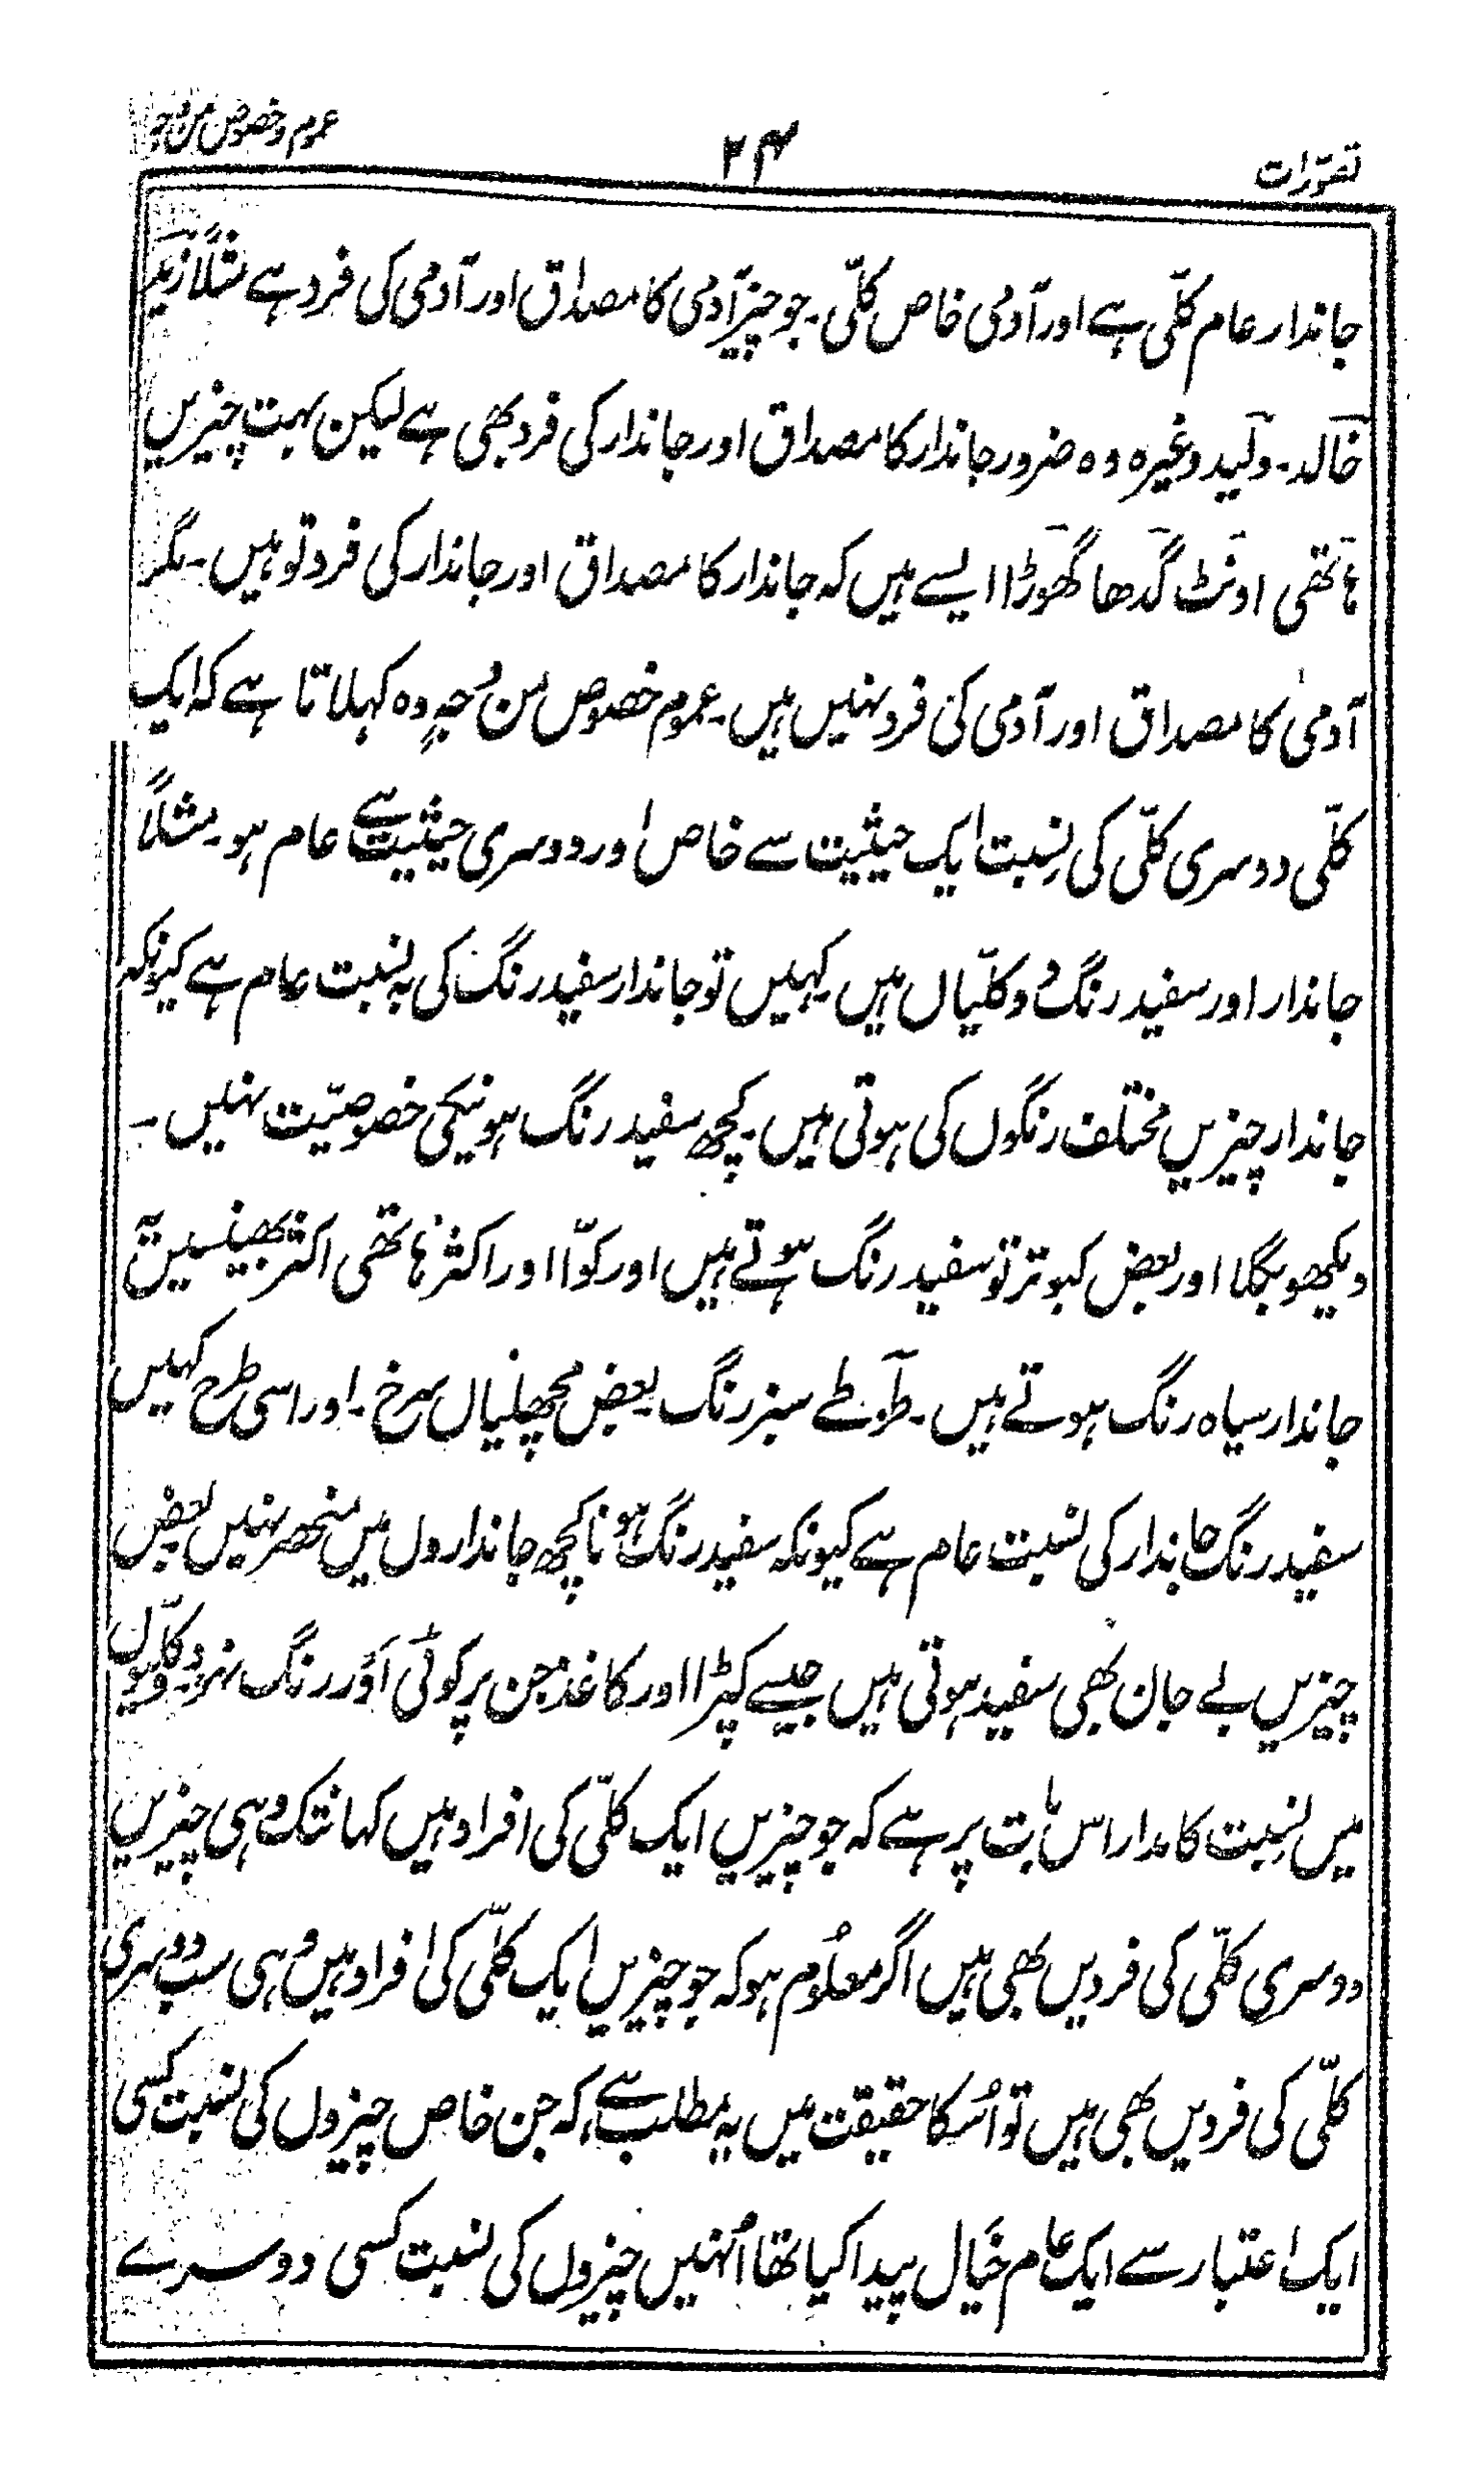 تصوّرات
۲۴
عموم وخصوص من وجہ
جاندار عام کلّی ہے اور آدمی خاص کلّی۔ جو چیز آدمی کا مصداق اور آدمی کی فرد ہے مثلاً زید
خالد۔ ولید وغیرہ وہ ضرور جاندار کا مصداق اور جاندار کی فرد بھی ہے لیکن بہت چیزیں
ہاتھی اونٹ گدھا گھوڑا ایسے ہیں کہ جاندار کا مصداق اور جاندار کی فرد تو ہیں۔ مگر
آدمی کا مصداق اور آدمی کی فرد نہیں ہیں۔ عموم خصوص من وُجہٍ وہ کہلاتا ہے کہ ایک
کلّی دوسری کلّی کی نِسبت ایک حیثیت سے خاص اور دوسری حیثیت سے عام ہو۔ مثلاً
جاندار اور سفید رنگ دو کلّیاں ہیں۔ کہیں تو جاندار سفید رنگ کی بہ نسبت عام ہے کیونکہ
جاندار چیزیں مختلف رنگوں کی ہوتی ہیں۔ کچھ سفید رنگ ہونیکی خصوصیّت نہیں۔
دیکھو بگلا اور بعض کبوتر تو سفید رنگ ہوتے ہیں اور کوّا اور اکثر ہاتھی اکثر بھینسیں
جاندار سیاہ رنگ ہوتے ہیں۔ طوطے سبز رنگ۔ بعض مچھلیاں سرخ۔ اور اسی طرح کہیں
سفید رنگ جاندار کی نسبت عام ہے کیونکہ سفید رنگ ہونا کچھ جانداروں میں منحصر نہیں بعض
چیزیں بے جان بھی سفید ہوتی ہیں جیسے کپڑا اور کاغذ جن پر کوئی اَوْر رنگ نہو۔ دو کلّیوں
میں نِسبت کا مدار اس بات پر ہے کہ جو چیزیں ایک کلّی کی افراد ہیں کہانتک وہی چیزیں
دوسری کلّی کی فردیں بھی ہیں اگر معلُوم ہو کہ جو چیزیں ایک کلّی کی افراد ہیں وہی سب دوسری
کلّی کی فردیں بھی ہیں تو اُسکا حقیقت میں یہ مطلب ہے کہ جن خاص چیزوں کی نسبت کسی
ایک اعتبار سے ایک عام خَیال پیدا کیا تھا اُنہیں چیزوں کی نسبت کسی دوسرے